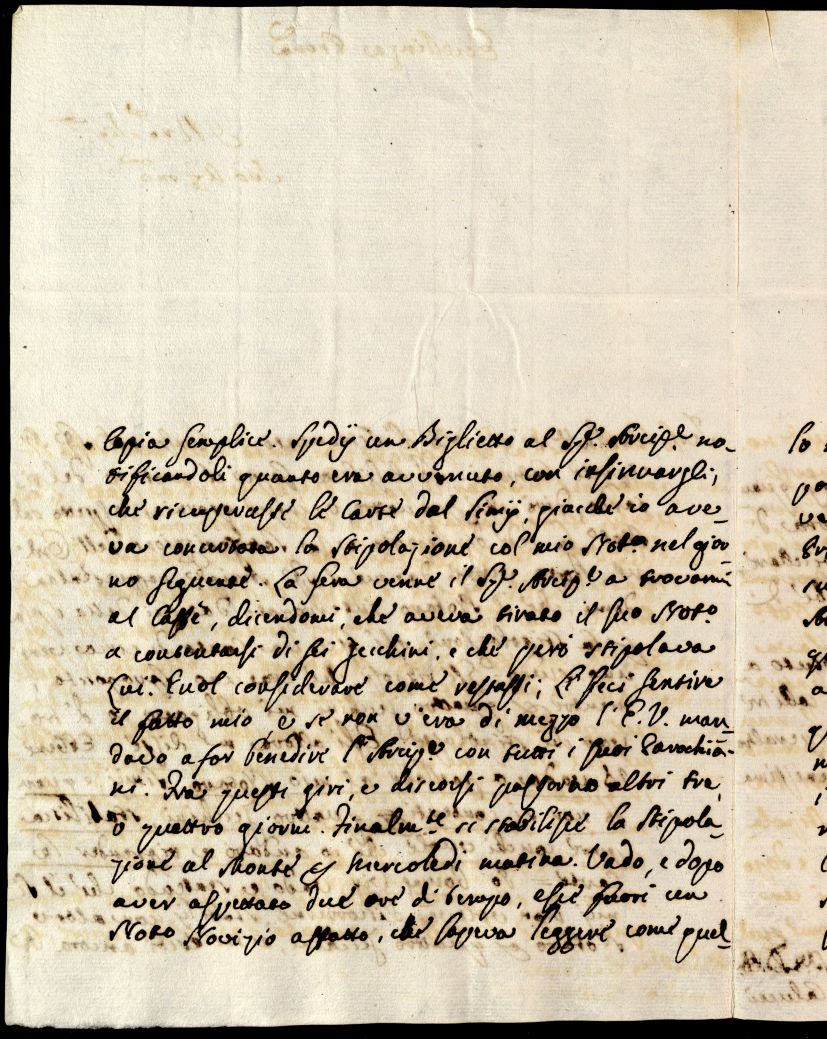 Copia semplice. Spedij un Biglietto al Sig.r Arcip.e no-
tificandoli quanto era avvenuto, con insinuargli,
che ricuperasse le Carte dal Simij, giacche io ave-
va concertata la stipolazione col mio Not.o nel gior-
no seguente. La sera venne il Sig.r Arcip.e a trovarmi
al Caffè, dicendomi, che aveva tirato il suo Not.o
a contentarsi di sei zecchini, e che però stipolava
Lui. Puol considerare come restassi; Le feci sentire
il fatto mio, e se non v'era di mezzo l'E.V. man-
davo a far benedire l'Arcip.e con tutti i suoi Parochia-
ni. Fra questi giri, e discorsi passorno altri tre,
o quattro giorni. Finalm.te si stabilisce la stipola-
zione al Monte per Mercoledì matina. Vado, e dopo
aver aspettato due ore di tempo, esce fuori un
Noto Novizio affatto, che sapeva leggere come quel-
lo